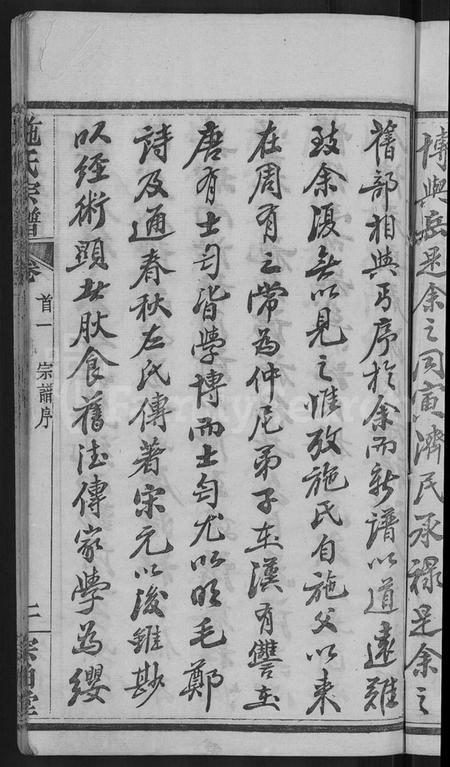 博與岳是余之同寅濟民承祿是余之
舊部相與丐序於余而新譜以道遠難
致余復無以見之惟攷施氏自施父以來
在周有之常為仲尼弟子在漢有讐在
唐有士匄皆學博而士匄尤以明毛鄭
詩及通春秋左氏傳著宋元以後雖尠
以經術顯其猷食舊德傳家學為纓
施氏宗譜
卷首一 宗譜序
二